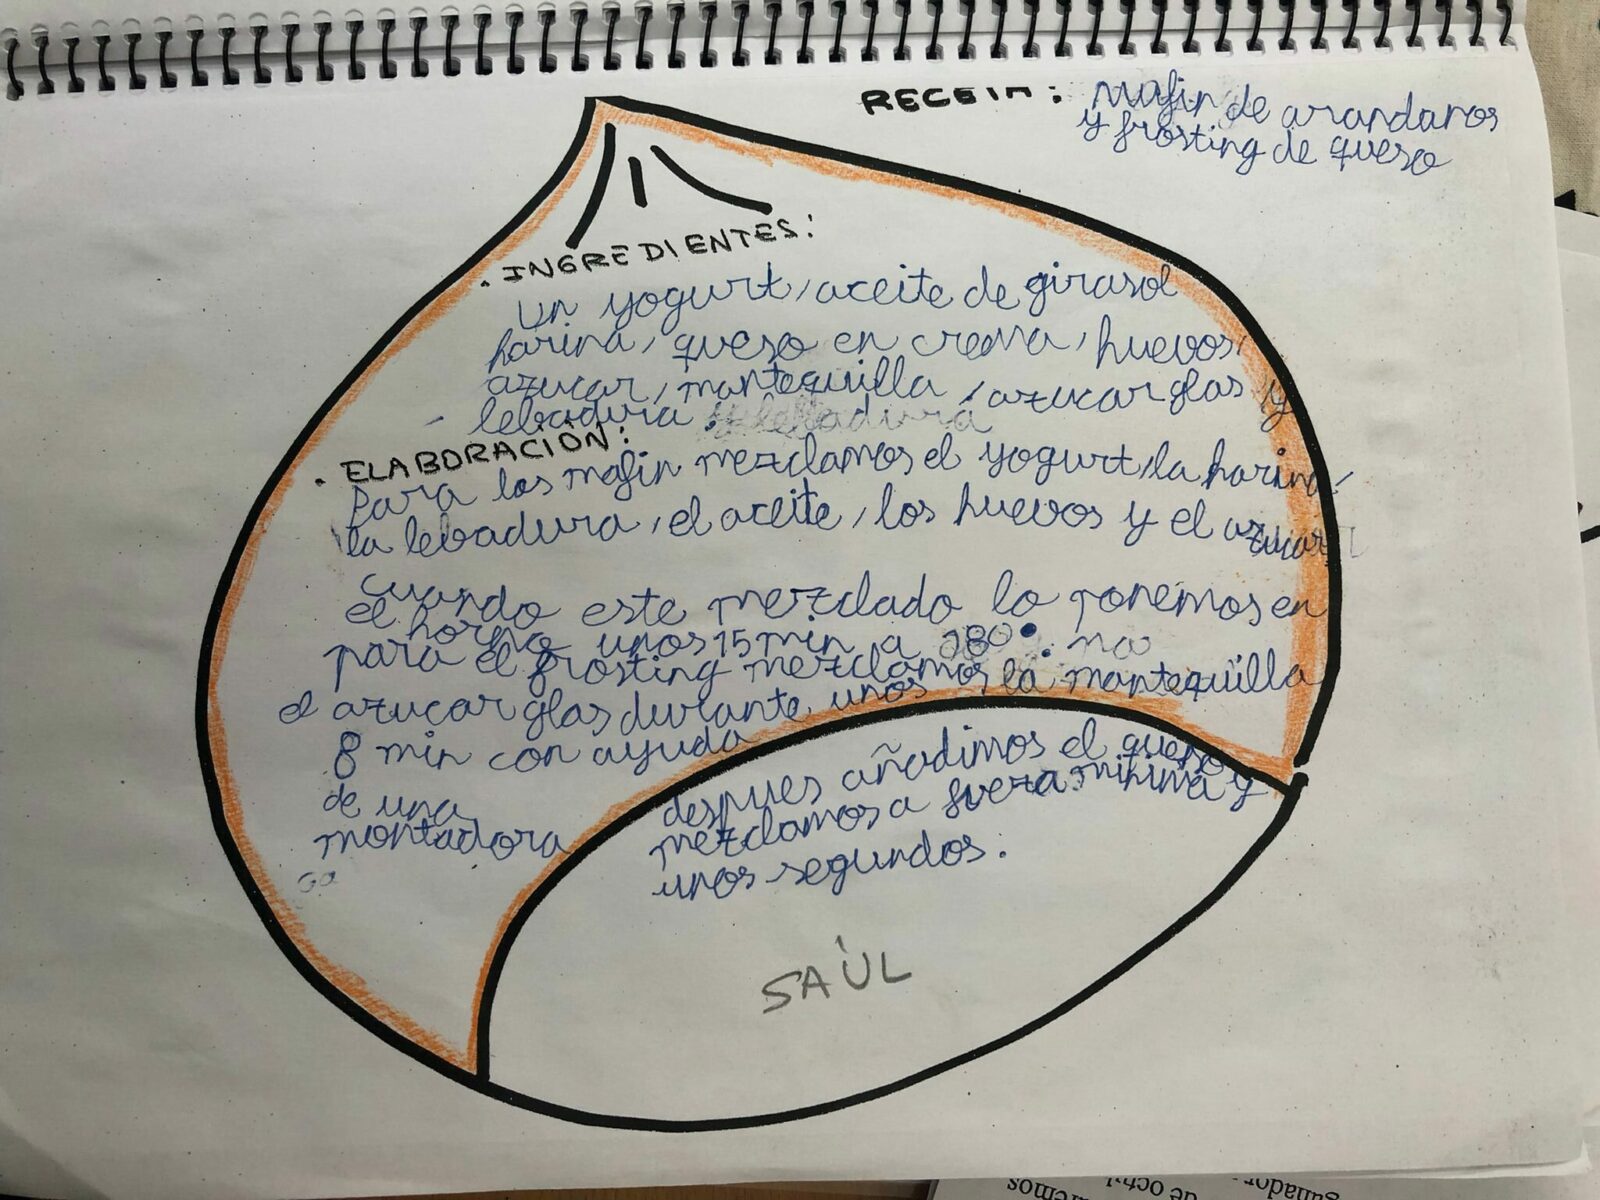 RECETA: Mafin de arandanos
y frosting de queso
. INGREDIENTES:
Un yogurt, aceite de girasol
harina, queso en crema, huevos,
azucar, mantequilla, azucar glas y
lebadura. y lebadura
. ELABORACIÓN:
Para los mafin mezclamos el yogurt, la harina,
la lebadura, el aceite, los huevos y el azucar
Cuando este mezclado lo ponemos en
el horno unos 15 min a 180°.
para el frosting mezclamos la mantequilla
el azucar glas durante unos
8 min con ayuda
de una
montadora
despues añadimos el queso
mezclamos a fuerza minima y
unos segundos.
SAÚL